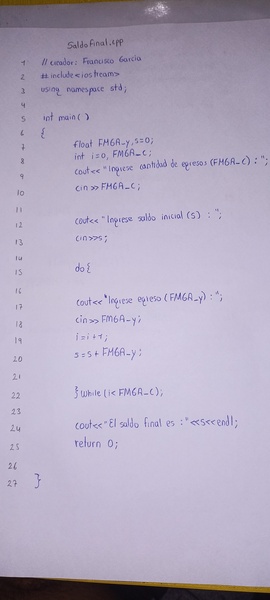 Saldo Final.cpp
1 // creador: Francisco García
2 # include <iostream>
3 using namespace std;
4
5 int main( )
6 {
7 float FMGA_y, s=0;
8 int i=0, FMGA_c;
9 cout<<"Ingrese cantidad de egresos (FMGA_c) : ";
10 cin>>FMGA_c;
11
12 cout<<"Ingrese saldo inicial (s) : ";
13 cin>>s;
14
15 do{
16
17 cout<<"Ingrese egreso (FMGA_y) : ";
18 cin>>FMGA_y;
19 i=i+1;
20 s=s+FMGA_y;
21
22 }while(i<FMGA_c);
23
24 cout<<"El saldo final es : "<<s<<endl;
25 return 0;
26
27 }